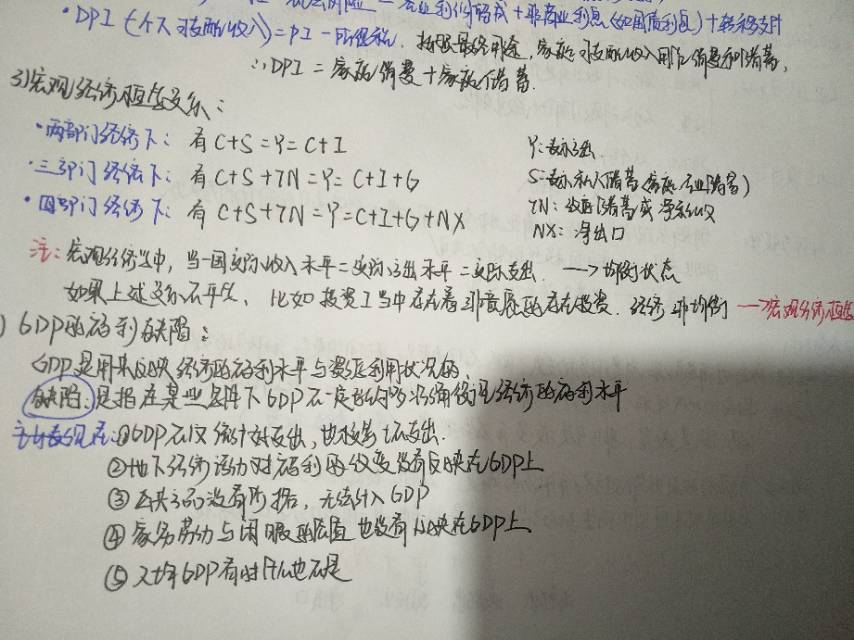 企业利润留成+非商业利息(如国债利息)+转移支付
•DPI(个人可支配收入)=PI-所得税. 按照最终用途,家庭可支配收入用作消费和储蓄,
∴DPI=家庭消费+家庭储蓄.
3)宏观经济恒等关系:
•两部门经济下: 有C+S=Y=C+I Y:表示产出
•三部门经济下: 有C+S+TN=Y=C+I+G S:表示私人储蓄(家庭、企业储蓄)
•四部门经济下: 有C+S+TN=Y=C+I+G+NX TN:政府储蓄或净税收
NX:净出口
注:宏观经济学中,当一国实际收入水平=实际产出水平=实际支出.→均衡状态
如果上述关系不平等,比如投资I当中存在着非意愿的存货投资.经济非均衡→宏观经济恒等
)GDP的福利缺陷:
GDP是用来反映经济的福利水平与资源利用状况的,
缺陷:是指在某些条件下GDP不一定能够准确衡量经济的福利水平
主要表现在:①GDP不仅统计好支出,也核算坏支出.
②地下经济活动对福利的改变没有反映在GDP上
③公共产品没有价格,无法计入GDP
④家务劳动与闲暇的价值也没有反映在GDP上
⑤人均GDP有时候也不是